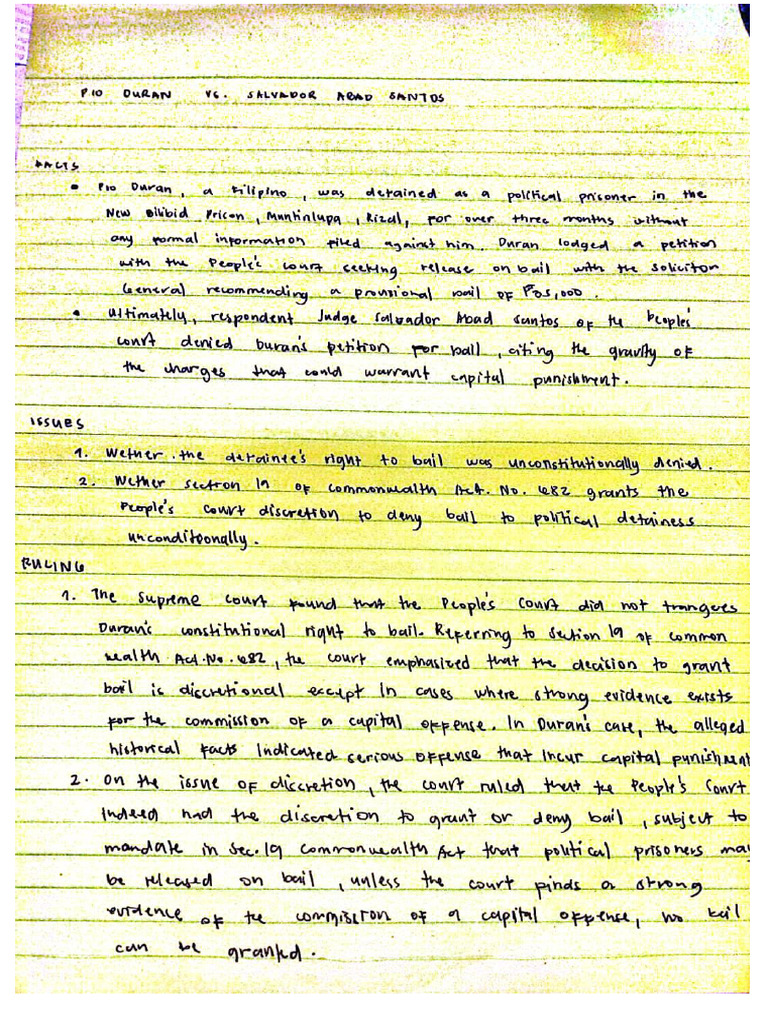 PIO DURAN VS. SALVADOR ABAD SANTOS
FACTS
• Pio Duran, a Filipino, was detained as a political prisoner in the
New Bilibid Prison, Muntinlupa, Rizal, for over three months without
any formal information filed against him. Duran lodged a petition
with the People's court seeking release on bail with the solicitor
General recommending a provisional bail of ₱35,000.
• Ultimately, respondent Judge Salvador Abad Santos of the People's
court denied Duran's petition for bail, citing the gravity of
the charges that could warrant capital punishment.
ISSUES
1. Wether the detainee's right to bail was unconstitutionally denied.
2. Wether section 19 of commonwealth Act. No. 682 grants the
People's court discretion to deny bail to political detainess
unconditoonally.
RULING
1. The supreme court found that the People's Court did not trangeres
Duran's constitutional right to bail. Referring to section 19 of common
wealth Act. No. 682, the court emphasized that the decision to grant
bail is discretional except in cases where strong evidence exists
for the commission of a capital offense. In Duran's case, the alleged
historical facts indicated serious offense that incur capital punishment
2. On the issue of discretion, the court ruled that the People's Court
Indeed had the discretion to grant or deny bail, subject to
mandate in Sec. 19 commonwealth Act that political prisoners may
be released on bail, unless the court finds a strong
evidence of the commission of a capital offense, no bail
can be granted.